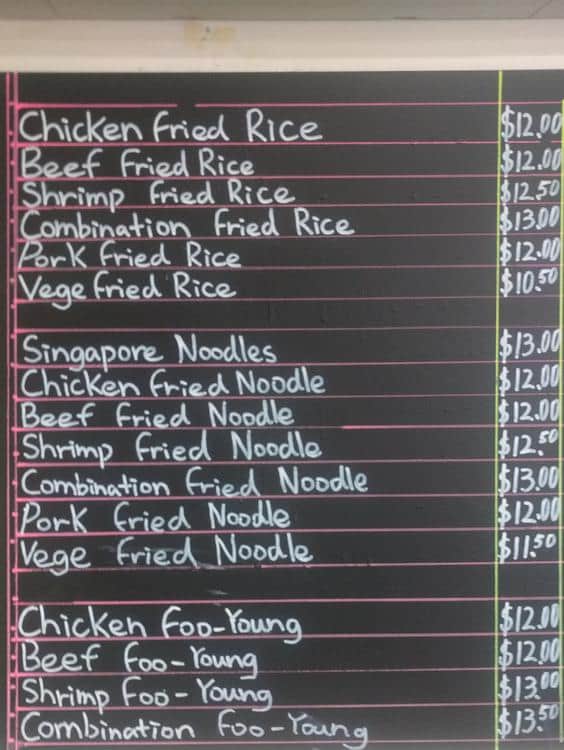 Chicken Fried Rice $12.00
Beef Fried Rice $12.00
Shrimp Fried Rice $12.50
Combination Fried Rice $13.00
Pork Fried Rice $12.00
Vege Fried Rice $10.50
Singapore Noodles $13.00
Chicken Fried Noodle $12.00
Beef Fried Noodle $12.00
Shrimp Fried Noodle $12.50
Combination Fried Noodle $13.00
Pork Fried Noodle $12.00
Vege Fried Noodle $11.50
Chicken Foo-Young $12.00
Beef Foo-Young $12.00
Shrimp Foo-Young $13.00
Combination Foo-Young $13.50